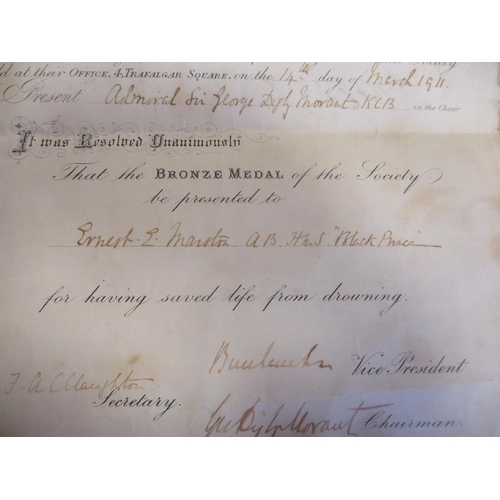 d at their Office, 4, Trafalgar Square, on the 14th day of March 1911.
Present Admiral Sir George Digby Morant KCB in the Chair
It was Resolved Unanimously
That the BRONZE MEDAL of the Society
be presented to
Ernest. E. Marston. AB. HMS. "Black Prince
for having saved life from drowning.
Buccleuch Vice President
F. A. C. Claughton
Secretary.
Geo Digby Morant Chairman.